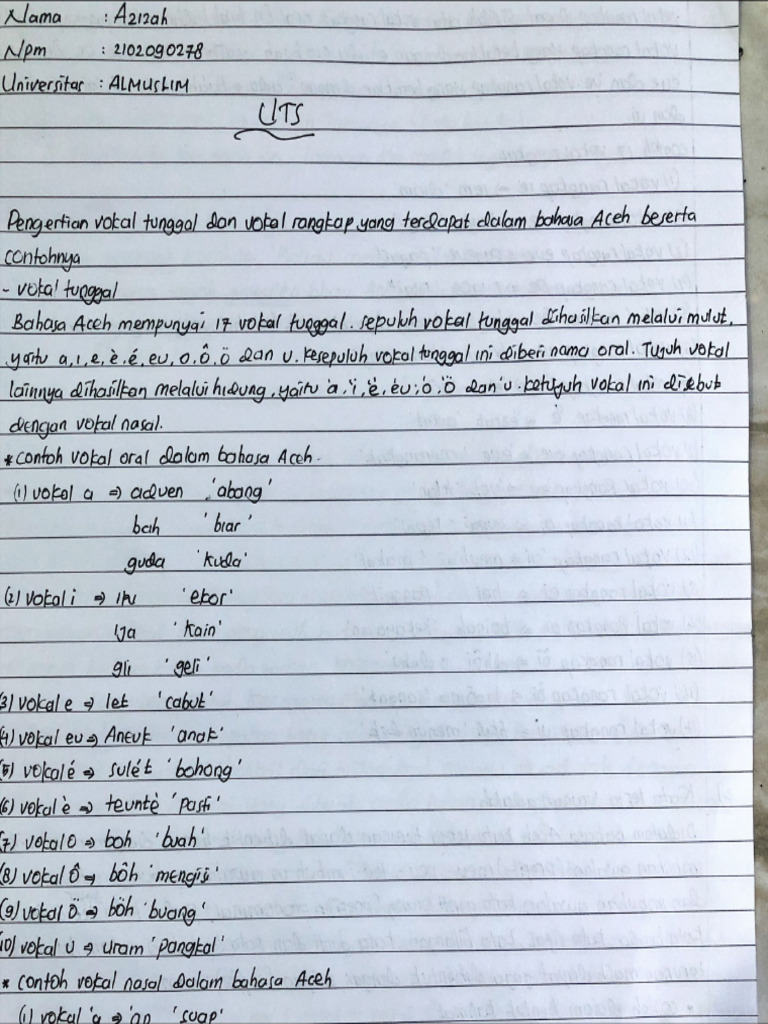 Nama : Azizah
Npm : 2102090278
Universitas : ALMUSLIM
UTS
Pengertian vokal tunggal dan vokal rangkap yang terdapat dalam bahasa Aceh beserta
contohnya
- vokal tunggal
Bahasa Aceh mempunyai 17 vokal tunggal. sepuluh vokal tunggal dihasilkan melalui mulut,
yaitu a, i, e, è, é, eu, o, ô, ö dan u. kesepuluh vokal tunggal ini diberi nama oral. Tujuh vokal
lainnya dihasilkan melalui hidung, yaitu 'a, 'i, 'è, 'eu, 'o, 'ö dan 'u. ketujuh vokal ini disebut
dengan vokal nasal.
* contoh vokal oral dalam bahasa Aceh.
(1) vokal a => aduen 'abang'
bah 'biar'
guda 'kuda'
(2) vokal i => iku 'ekor'
ija 'kain'
gli 'geli'
(3) vokal e => let 'cabut'
(4) vokal eu => Aneuk 'anak'
(5) vokal é => sulét 'bohong'
(6) vokal è => teuntè 'pasti'
(7) vokal o => boh 'buah'
(8) vokal ô => bôh 'mengisi'
(9) vokal ö => böh 'buang'
(10) vokal u => uram 'pangkal'
* contoh vokal nasal dalam bahasa Aceh
(1) vokal 'a => 'ap 'suap'